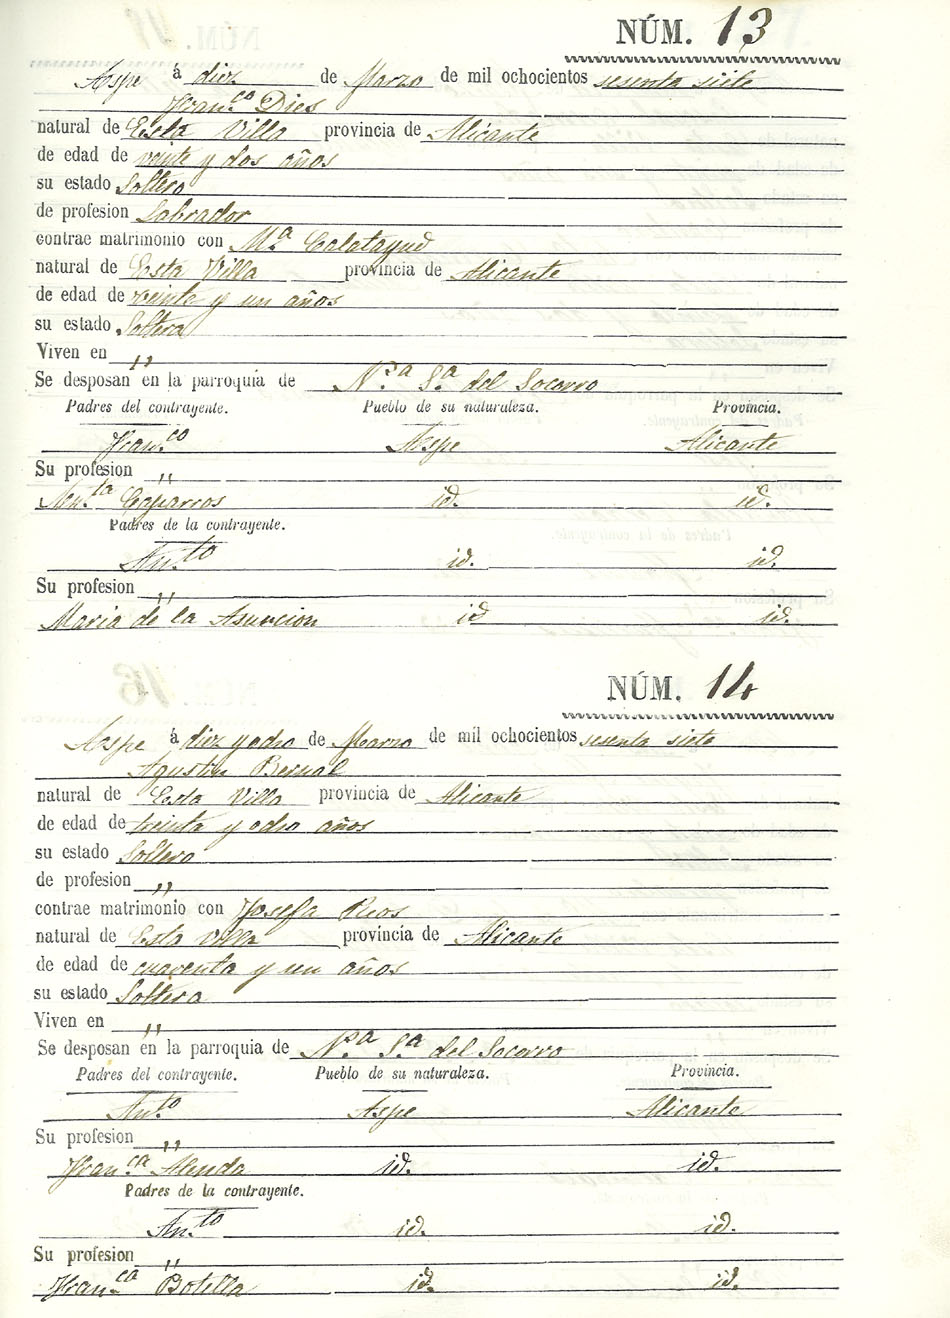 NÚM. 13
Aspe á diez de Marzo de mil ochocientos sesenta siete
Fran.co Dies
natural de Esta Villa provincia de Alicante
de edad de veinte y dos años
su estado Soltero
de profesion Labrador
contrae matrimonio con M.a Calatayud
natural de Esta Villa provincia de Alicante
de edad de veinte y un años
su estado Soltera
Viven en ,,
Se desposan en la parroquia de N.ra S.a del Socorro
Padres del contrayente. Pueblo de su naturaleza. Provincia.
Fran.co Aspe Alicante
Su profesion ,,
Ant.ta Caparros id. id.
Padres de la contrayente.
Ant.to id. id.
Su profesion ,,
Maria de la Asuncion id id.
NÚM. 14
Aspe á diez y ocho de Marzo de mil ochocientos sesenta siete
Agustin Bernal
natural de Esta Villa provincia de Alicante
de edad de treinta y ocho años
su estado Soltero
de profesion ,,
contrae matrimonio con Josefa Rios
natural de Esta Villa provincia de Alicante
de edad de cuaventa y un años
su estado Soltera
Viven en ,,
Se desposan en la parroquia de N.ra S.a del Socorro
Padres del contrayente. Pueblo de su naturaleza. Provincia.
Ant.to Aspe Alicante
Su profesion ,,
Fran.ca Alenda id. id.
Padres de la contrayente.
Ant.to id. id.
Su profesion ,,
Fran.ca Botella id. id.